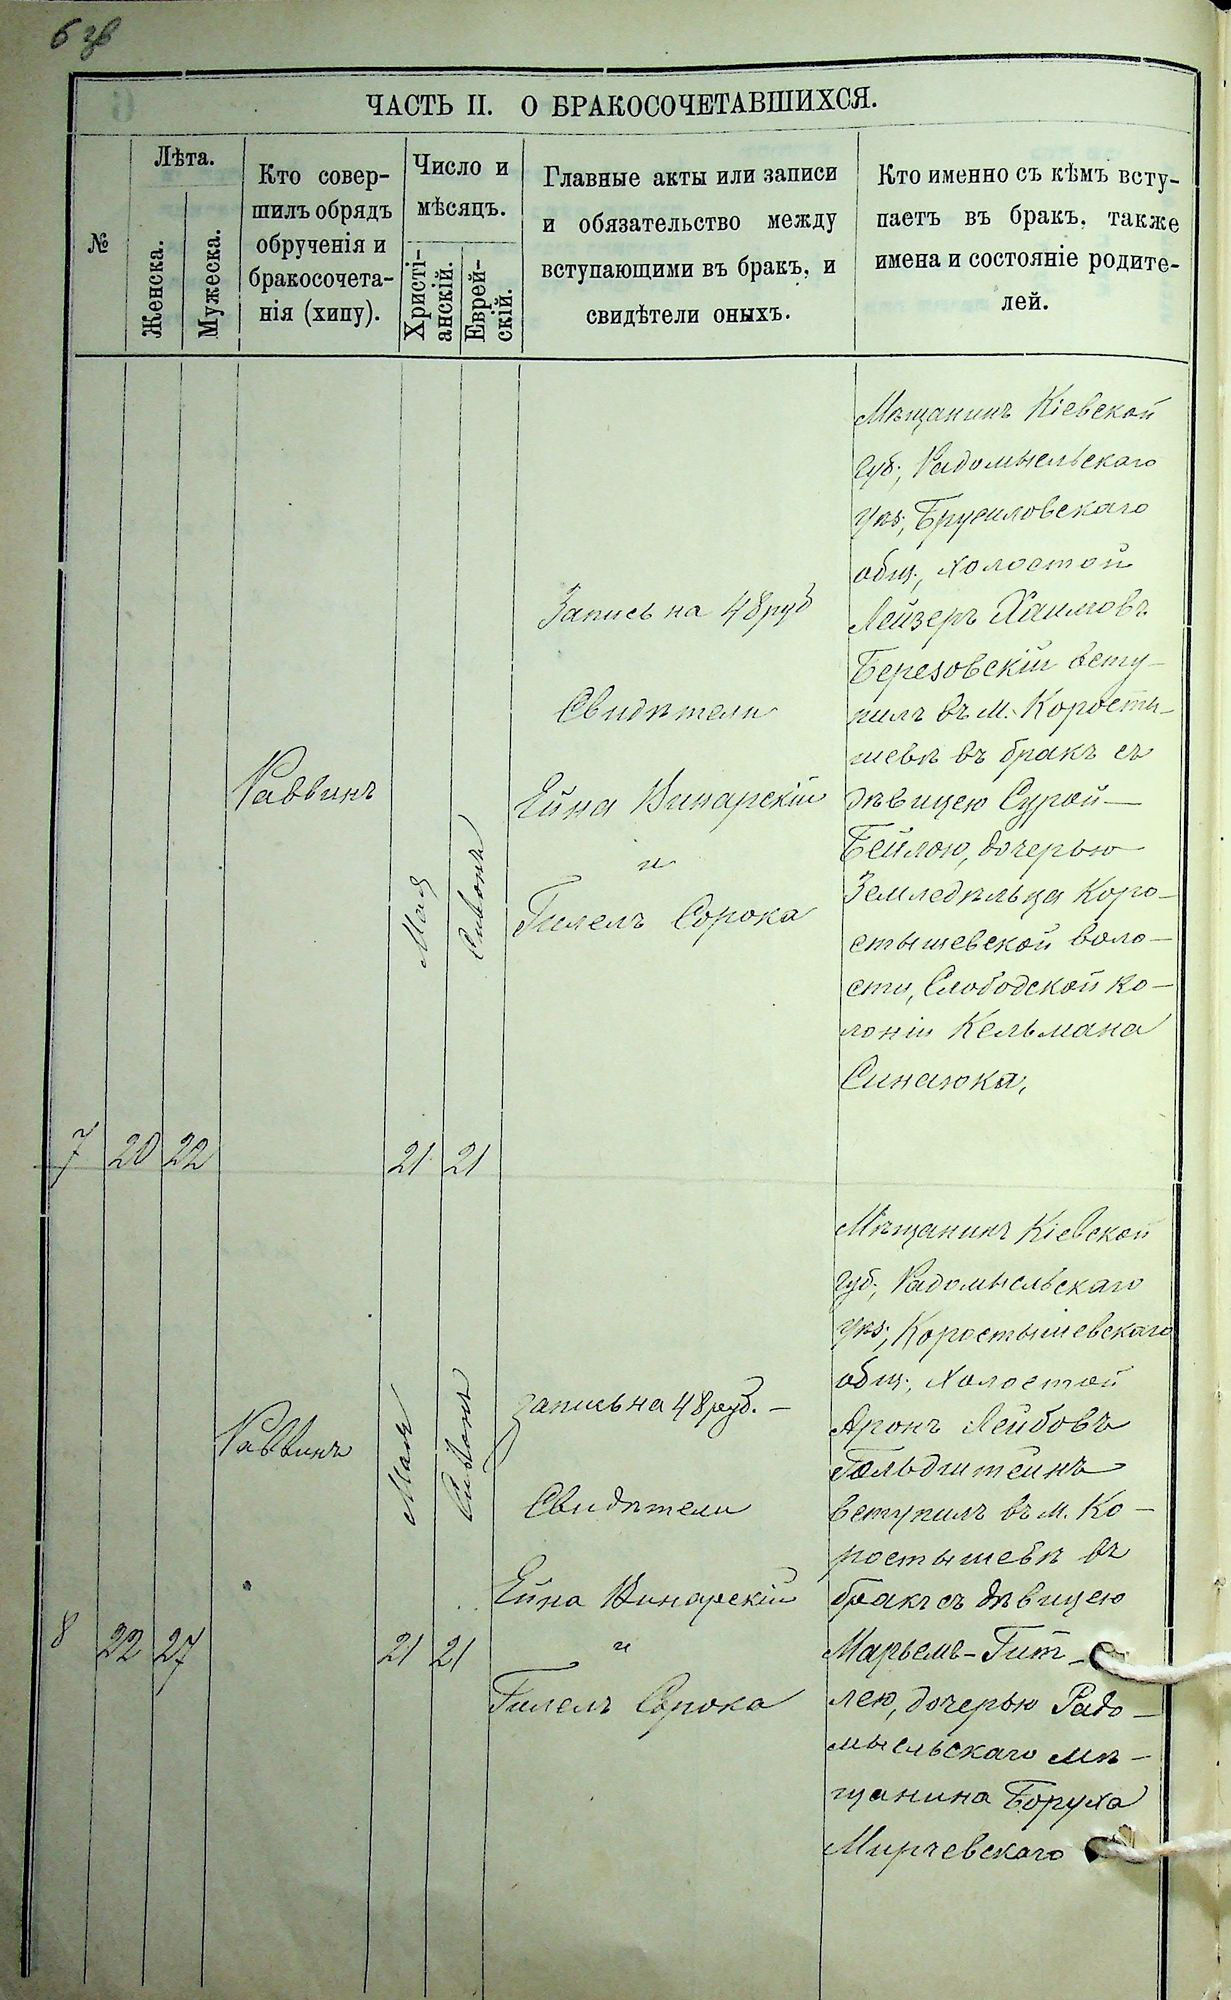 6 зв
ЧАСТЬ II. О БРАКОСОЧЕТАВШИХСЯ.
№
Лѣта.
Женска.
Мужеска.
Кто совер-
шилъ обрядъ
обрученія и
бракосочета-
нія (хипу).
Число и
мѣсяцъ.
Христі-
анскій.
Еврей-
скій.
Главные акты или записи
и обязательство между
вступающими въ бракъ, и
свидѣтели оныхъ.
Кто именно съ кѣмъ всту-
паетъ въ бракъ, также
имена и состояніе родите-
лей.
7
20
22
Раввинъ
Мая
21
Сивонъ
21
Запись на 48 руб
Свидѣтели
Ейна Винарскій
и
Гилелъ Сорока
Мѣщанинъ Кіевской
губ., Радомысльскаго
уѣз., Брусиловскаго
общ., холостой
Лейзеръ Хаимовъ
Березовскій всту-
пилъ въ м. Корости-
шевѣ въ бракъ съ
дѣвицею Сурой-
Бейлою, дочерью
Земледѣльца Коро-
стышевской воло-
сти, Слободской ко-
лоніи Кельмана
Синаюка,
8
22
27
Раввинъ
Мая
21
Сивонъ
21
Запись на 48 руб. -
Свидѣтели
Ейна Винарскій
и
Гилелъ Сорока
Мѣщанинъ Кіевской
губ., Радомысльскаго
уѣз., Коростышевскаго
общ., холостой
Аронъ Лейбовъ
Гольдштейнъ
вступилъ въ м. Ко-
ростышевѣ въ
бракъ съ дѣвицею
Марьемъ-Гит-
лею, дочерью Радо-
мысльскаго мѣ-
щанина Боруха
Мирчевскаго